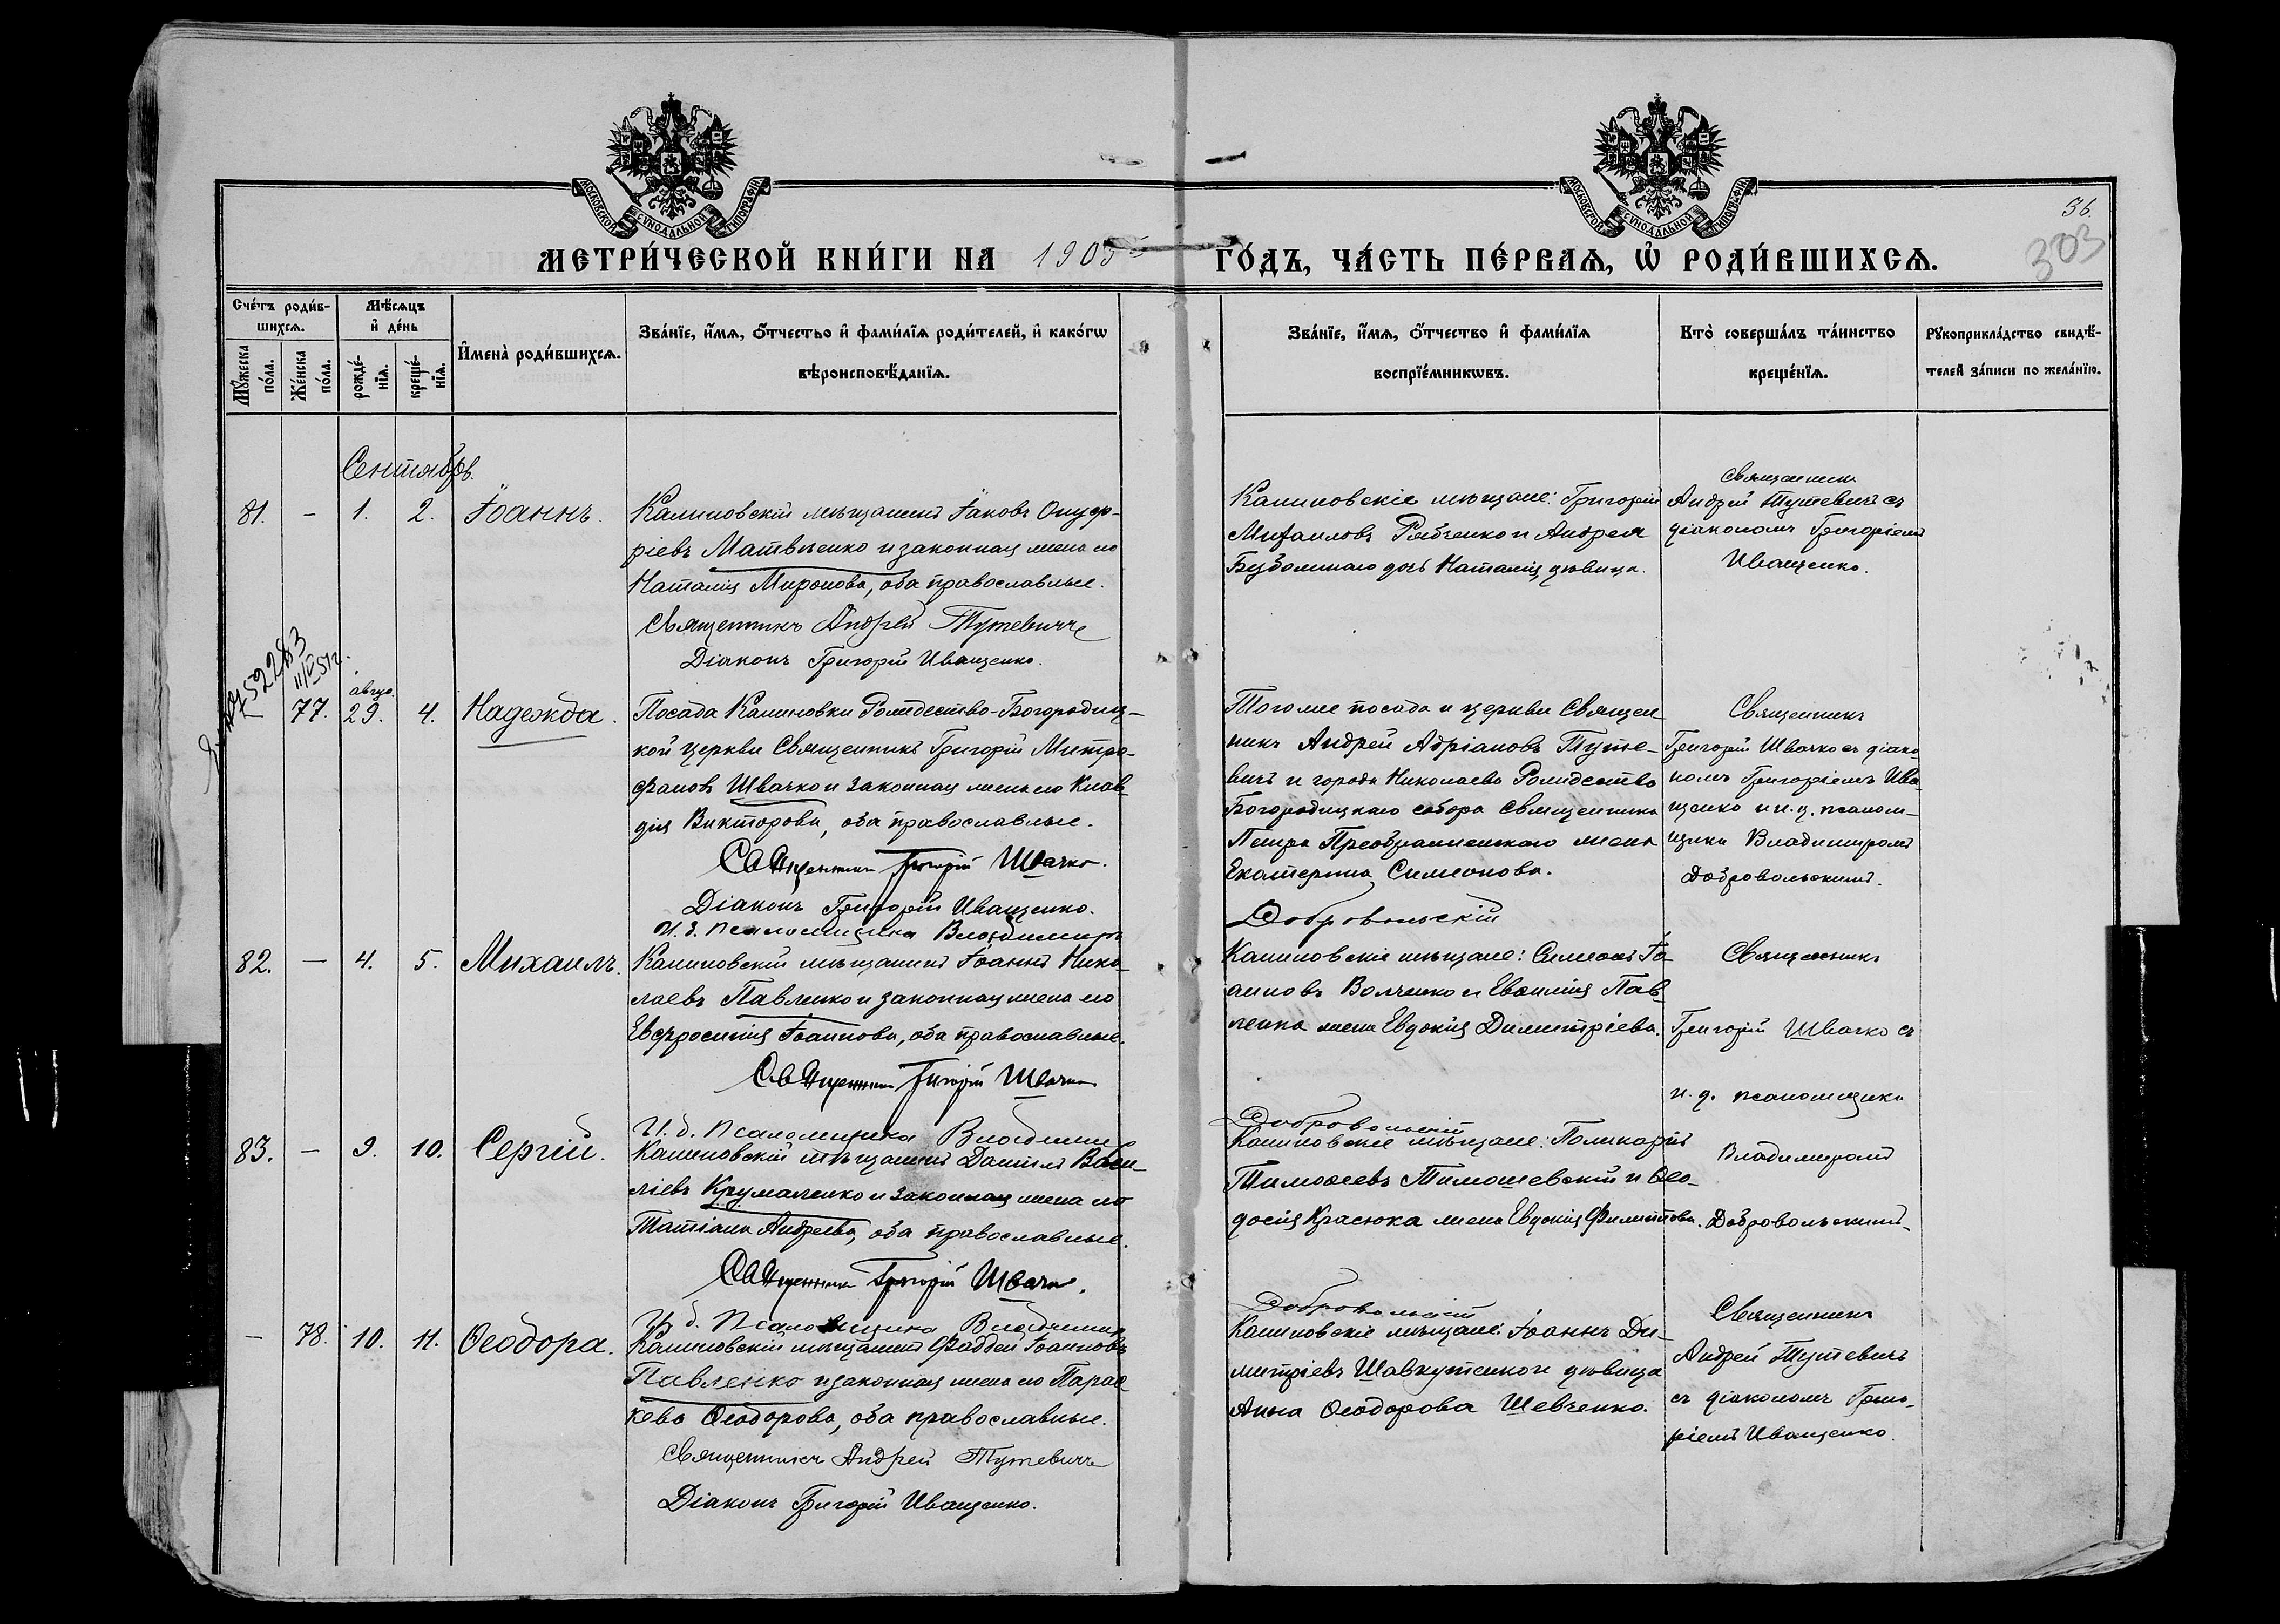 МОСКОВСКОЙ СѴНОДАЛЬНОЙ ТИПОГРАФІИ
МОСКОВСКОЙ СѴНОДАЛЬНОЙ ТИПОГРАФІИ
36.
303
МЕТРИ́ЧЕСКОЙ КНИ́ГИ НА 1905 ГО́ДЪ, ЧА́СТЬ ПЕ́РВАѦ, Ѡ҆ РОДИ́ВШИХСѦ.
Сче́тъ роди́в-
шихсѧ.
Мѣ́сѧцъ
и҆ де́нь
Мꙋ́жеска
по́ла.
Же́нска
по́ла.
рожде́-
нїѧ.
креще́-
нїѧ.
И҆мена̀ роди́вшихсѧ.
Зва́нїе, и҆́мѧ, ѻ҆́тчестьо и҆ фами́лїѧ роди́телей, и҆ како́гѡ
вѣроисповѣ́данїѧ.
Зва́нїе, и҆́мѧ, ѻ҆́тчество и҆ фами́лїѧ
воспрїе́мникѡвъ.
Кто̀ соверша́лъ та́инство
креще́нїѧ.
Рꙋкоприкла́дство свидѣ́-
телей за́писи по жела́нїю.
Сентябрь.
81. – 1. 2. Іоаннъ.
Калиновскій мѣщанинъ Іаковъ Онуф-
ріевъ Матвѣенко и законная жена его
Наталія Миронова, оба православные.
Священникъ Андрей Тутевичъ
Діаконъ Григорій Иващенко.
Калиновскіе мѣщане: Григорій
Михаиловъ Рябченко и Андрея
дочь Наталія дѣвица.
Священникъ
Андрей Тутевичъ съ
діакономъ Григоріемъ
Иващенко.
52283
11/IV 51г.
77. авгус. 29. 4. Надежда.
Посада Калиновки Рождество-Богородиц-
кой церкви Священникъ Григорій Митро-
фановъ Швачко и законная жена его Клав-
дія Викторова, оба православные.
Священникъ Григорій Швачко.
Діаконъ Григорій Иващенко.
И. д. псаломщика Владимиръ
Добровольскій
Того же посада и церкви Священ-
никъ Андрей Адріановъ Туте-
вичъ и города Николаева Рождество
Богородицкаго собора Священника
Петра Преображенскаго жена
Екатерина Симеонова.
Священникъ
Григорій Швачко съ діако
номъ Григоріемъ Ива
щенко и и. д. псалом-
щика Владимиромъ
Добровольскимъ.
82. – 4. 5. Михаилъ.
Калиновскій мѣщанинъ Іоаннъ Нико-
лаевъ Павленко и законная жена его
Евфросинія Іоаннова, оба православные.
Священникъ Григорій Швачко
И. д. Псаломщика Владимиръ
Добровольскій
Калиновскіе мѣщане: Симеонъ Іо-
анновъ Волченко и Пав-
ленка жена Евдокія Димитріева.
Священникъ
Григорій Швачко съ
и. д. псаломщика
Владимиромъ
Добровольскимъ
83. – 9. 10. Сергій.
Калиновскій мѣщанинъ Даніилъ Васи-
ліевъ Крумаленко и законная жена его
Татіана Андреева, оба православные.
Священникъ Григорій Швачко.
И. д. Псаломщика Владимиръ
Добровольскій
Калиновскіе мѣщане: Поликарпъ
Тимоѳеевъ Тимошевскій и Ѳео-
досія Красюка жена Евдокія Филиппова.
– 78. 10. 11. Ѳеодора.
Калиновскій мѣщанинъ Фаддей Іоанновъ
Павленко и законная жена его Парас
кева Ѳеодорова, оба православные.
Священникъ Андрей Тутевичъ
Діаконъ Григорій Иващенко.
Калиновскіе мѣщане: Іоаннъ Ди-
митріевъ Шавкутенко и дѣвица
Анна Ѳеодорова Шевченко.
Священникъ
Андрей Тутевичъ
съ діакономъ Григо-
ріемъ Иващенко.